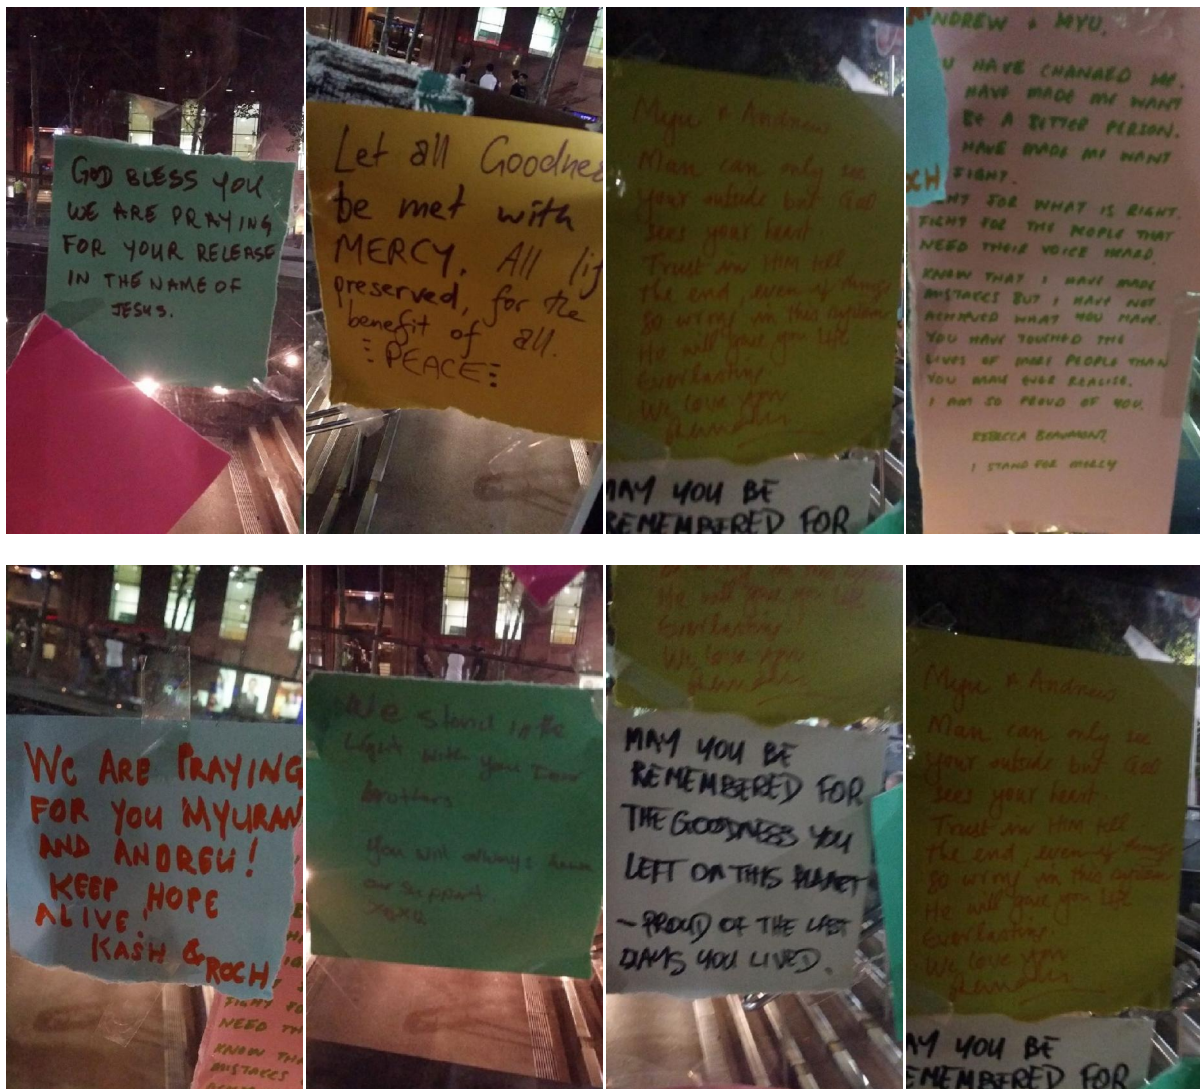 GOD BLESS YOU
WE ARE PRAYING
FOR YOUR RELEASE
IN THE NAME OF
JESUS.
Let all Goodnes
be met with
MERCY. All lif
preserved, for the
benefit of all.
PEACE
Myu & Andrew
Man can only see
your outside but God
sees your heart.
Trust in HIM till
the end, even if things
go wrong in this system
He will give you life
Everlasting.
We love you
MAY YOU BE
REMEMBERED FOR
NDREW & MYU,
U HAVE CHANGED ME.
HAVE MADE ME WANT
BE A BETTER PERSON.
HAVE MADE ME WANT
FIGHT.
CH
GHT FOR WHAT IS RIGHT.
FIGHT FOR THE PEOPLE THAT
NEED THEIR VOICE HEARD.
KNOW THAT I HAVE MADE
MISTAKES BUT I HAVE NOT
ACHIEVED WHAT YOU HAVE.
YOU HAVE TOUCHED THE
LIVES OF MORE PEOPLE THAN
YOU MAY EVER REALISE.
I AM SO PROUD OF YOU.
REBECCA BEAUMONT
I STAND FOR MERCY
WE ARE PRAYING
FOR YOU MYURAN
AND ANDREW!
KEEP HOPE
ALIVE!
KASH & ROCH
FIGHT FO
NEED TH
KNOW THA
MISTAKES
We stand in the
Light with you
brothers
You will always have
our support
xoxo
He will give you life
Everlasting.
We love you
MAY YOU BE
REMEMBERED FOR
THE GOODNESS YOU
LEFT ON THIS PLANET
- PROUD OF THE LAST
DAYS YOU LIVED.
Myu & Andrew
Man can only see
your outside but God
sees your heart.
Trust in HIM till
the end, even if things
go wrong in this system
He will give you life
Everlasting.
We love you
AY YOU BE
REMEMBERED FOR